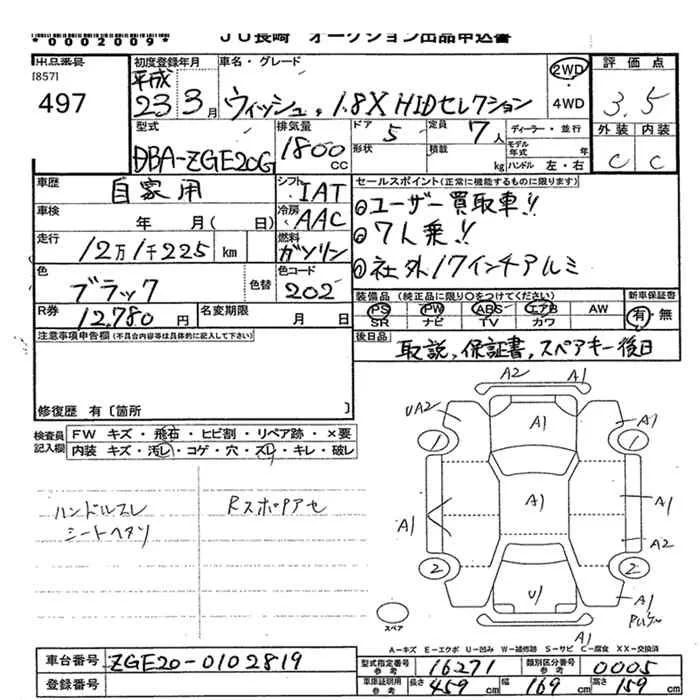 *0002009* JU長崎 オークション出品申込書
出品番号 [857] 497
初度登録年月 平成 23年 3月
車名・グレード ウィッシュ, 1.8X HIDセレクション
2WD ・ 4WD
評価点 3.5
外装 C 内装 C
型式 DBA-ZGE20G
排気量 1800 CC
ドア 5 形状
定員 7人 積載 kg
ディーラー・並行 モデル年式 年 ハンドル 左・右
車歴 自家用
シフト IAT
車検 年 月( 日)
冷房 AAC
走行 12万1千225 km
燃料 ガソリン
色 ブラック 色替
色コード 202
R券 12,780 円
名変期限 月 日
セールスポイント(正常に機能するものに限ります)
◎ユーザー買取車!!
◎7人乗!!
◎社外17インチアルミ
装備品 (純正品に限り〇をつけてください) 新車保証書
PS PW ABS エアB AW 有・無
SR ナビ TV カワ
後日品 取説,保証書,スペアキー後日
注意事項申告欄(不具合内容等は具体的に記入して下さい)
修復歴 有〔箇所 〕
検査員記入欄
FW キズ・飛石・ヒビ割・リペア跡・×要
内装 キズ・汚レ・コゲ・穴・スレ・キレ・破レ
ハンドルスレ
シートヘタリ
Rスポリアセ
A2 A1
UA2 A1 A1
1 1
A1 A1 A1
A2
2 2
U1 A1
A1
スペア
A-キズ E-エクボ U-凹み W-補修跡 S-サビ C-腐食 XX-交換済
車台番号 ZGE20-0102819
登録番号
型式指定番号 参考 16271
類別区分番号 参考 0005
車庫証明用 参考 長さ 459 cm 幅 169 cm 高さ 159 cm